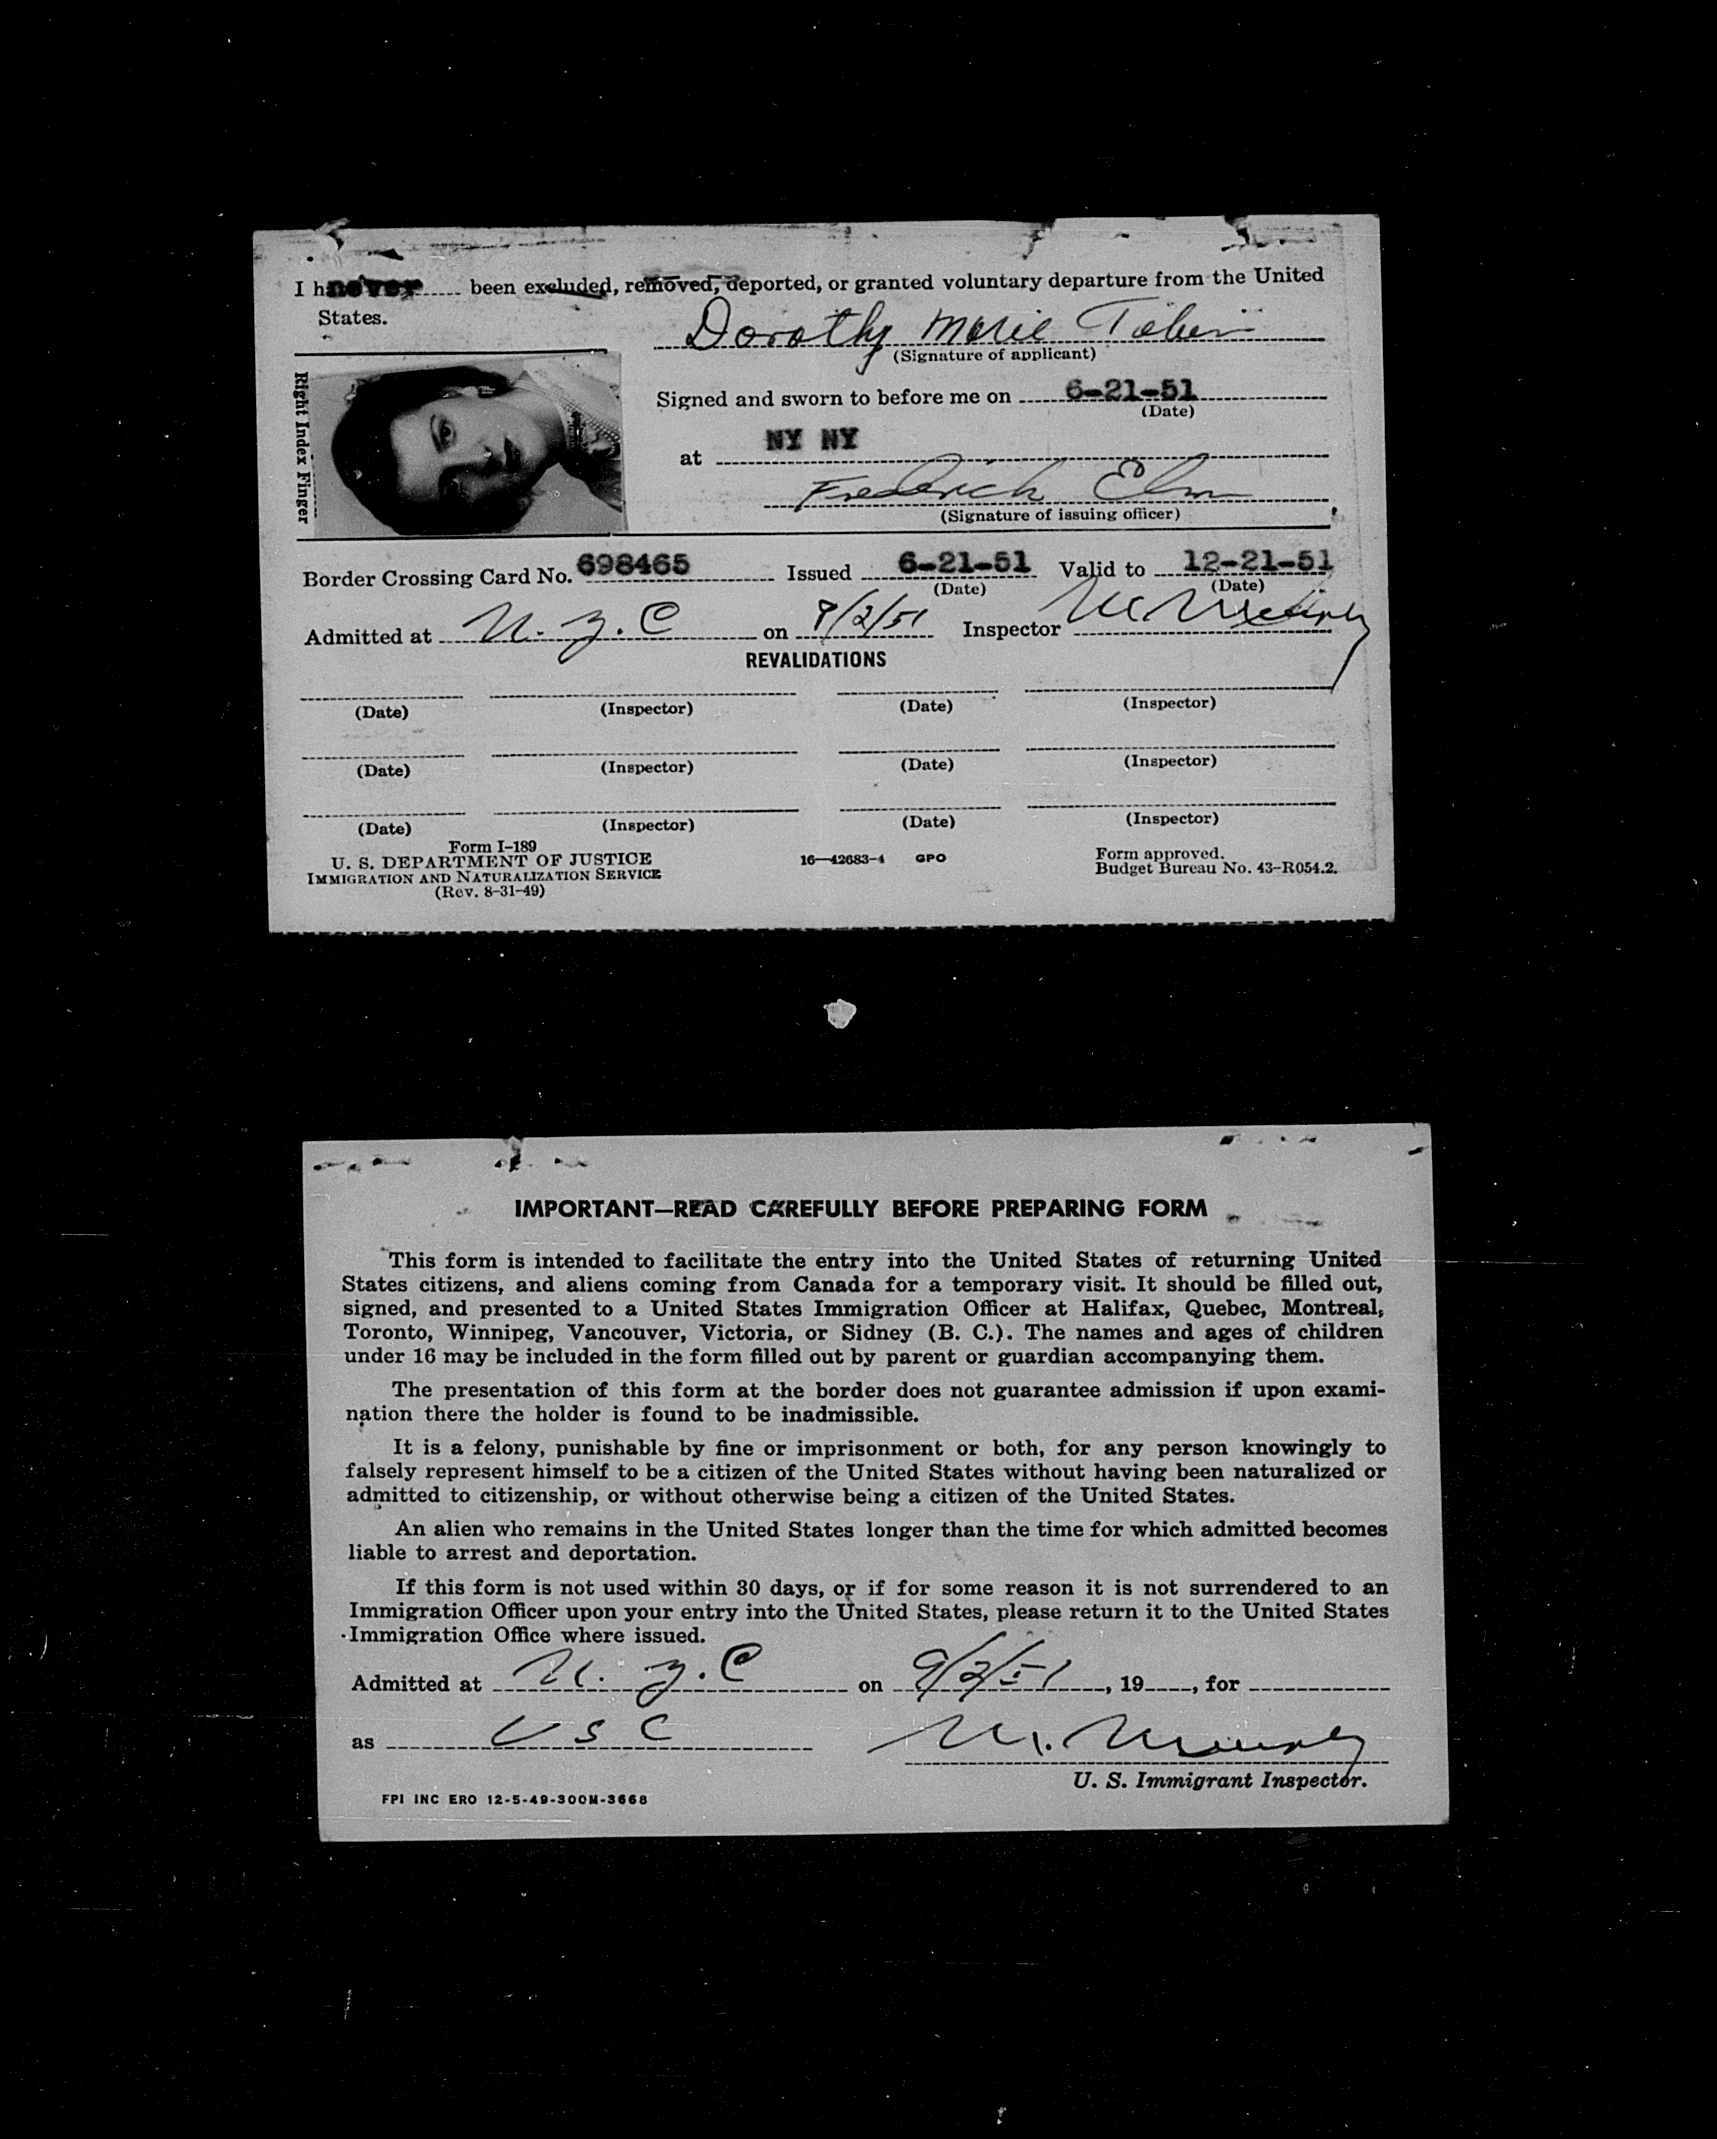 I h never been excluded, removed, deported, or granted voluntary departure from the United
States.
Dorothy Marie
(Signature of applicant)
Right Index Finger
Signed and sworn to before me on 6-21-51
(Date)
at NY NY
Frederick Elm
(Signature of issuing officer)
Border Crossing Card No. 698465 Issued 6-21-51 Valid to 12-21-51
(Date) (Date)
Admitted at N.Y.C on 9/2/51 Inspector
REVALIDATIONS
(Date) (Inspector) (Date) (Inspector)
(Date) (Inspector) (Date) (Inspector)
(Date) (Inspector) (Date) (Inspector)
Form I-189
U. S. DEPARTMENT OF JUSTICE
IMMIGRATION AND NATURALIZATION SERVICE
(Rev. 8-31-49)
16—42683-1 GPO
Form approved.
Budget Bureau No. 43-R054.2.
IMPORTANT—READ CAREFULLY BEFORE PREPARING FORM
This form is intended to facilitate the entry into the United States of returning United
States citizens, and aliens coming from Canada for a temporary visit. It should be filled out,
signed, and presented to a United States Immigration Officer at Halifax, Quebec, Montreal,
Toronto, Winnipeg, Vancouver, Victoria, or Sidney (B. C.). The names and ages of children
under 16 may be included in the form filled out by parent or guardian accompanying them.
The presentation of this form at the border does not guarantee admission if upon exami-
nation there the holder is found to be inadmissible.
It is a felony, punishable by fine or imprisonment or both, for any person knowingly to
falsely represent himself to be a citizen of the United States without having been naturalized or
admitted to citizenship, or without otherwise being a citizen of the United States.
An alien who remains in the United States longer than the time for which admitted becomes
liable to arrest and deportation.
If this form is not used within 30 days, or if for some reason it is not surrendered to an
Immigration Officer upon your entry into the United States, please return it to the United States
Immigration Office where issued.
Admitted at N.Y.C on 9/2/51, 19, for
as USC
U. S. Immigrant Inspector.
FPI INC ERO 12-5-49-300M-3668